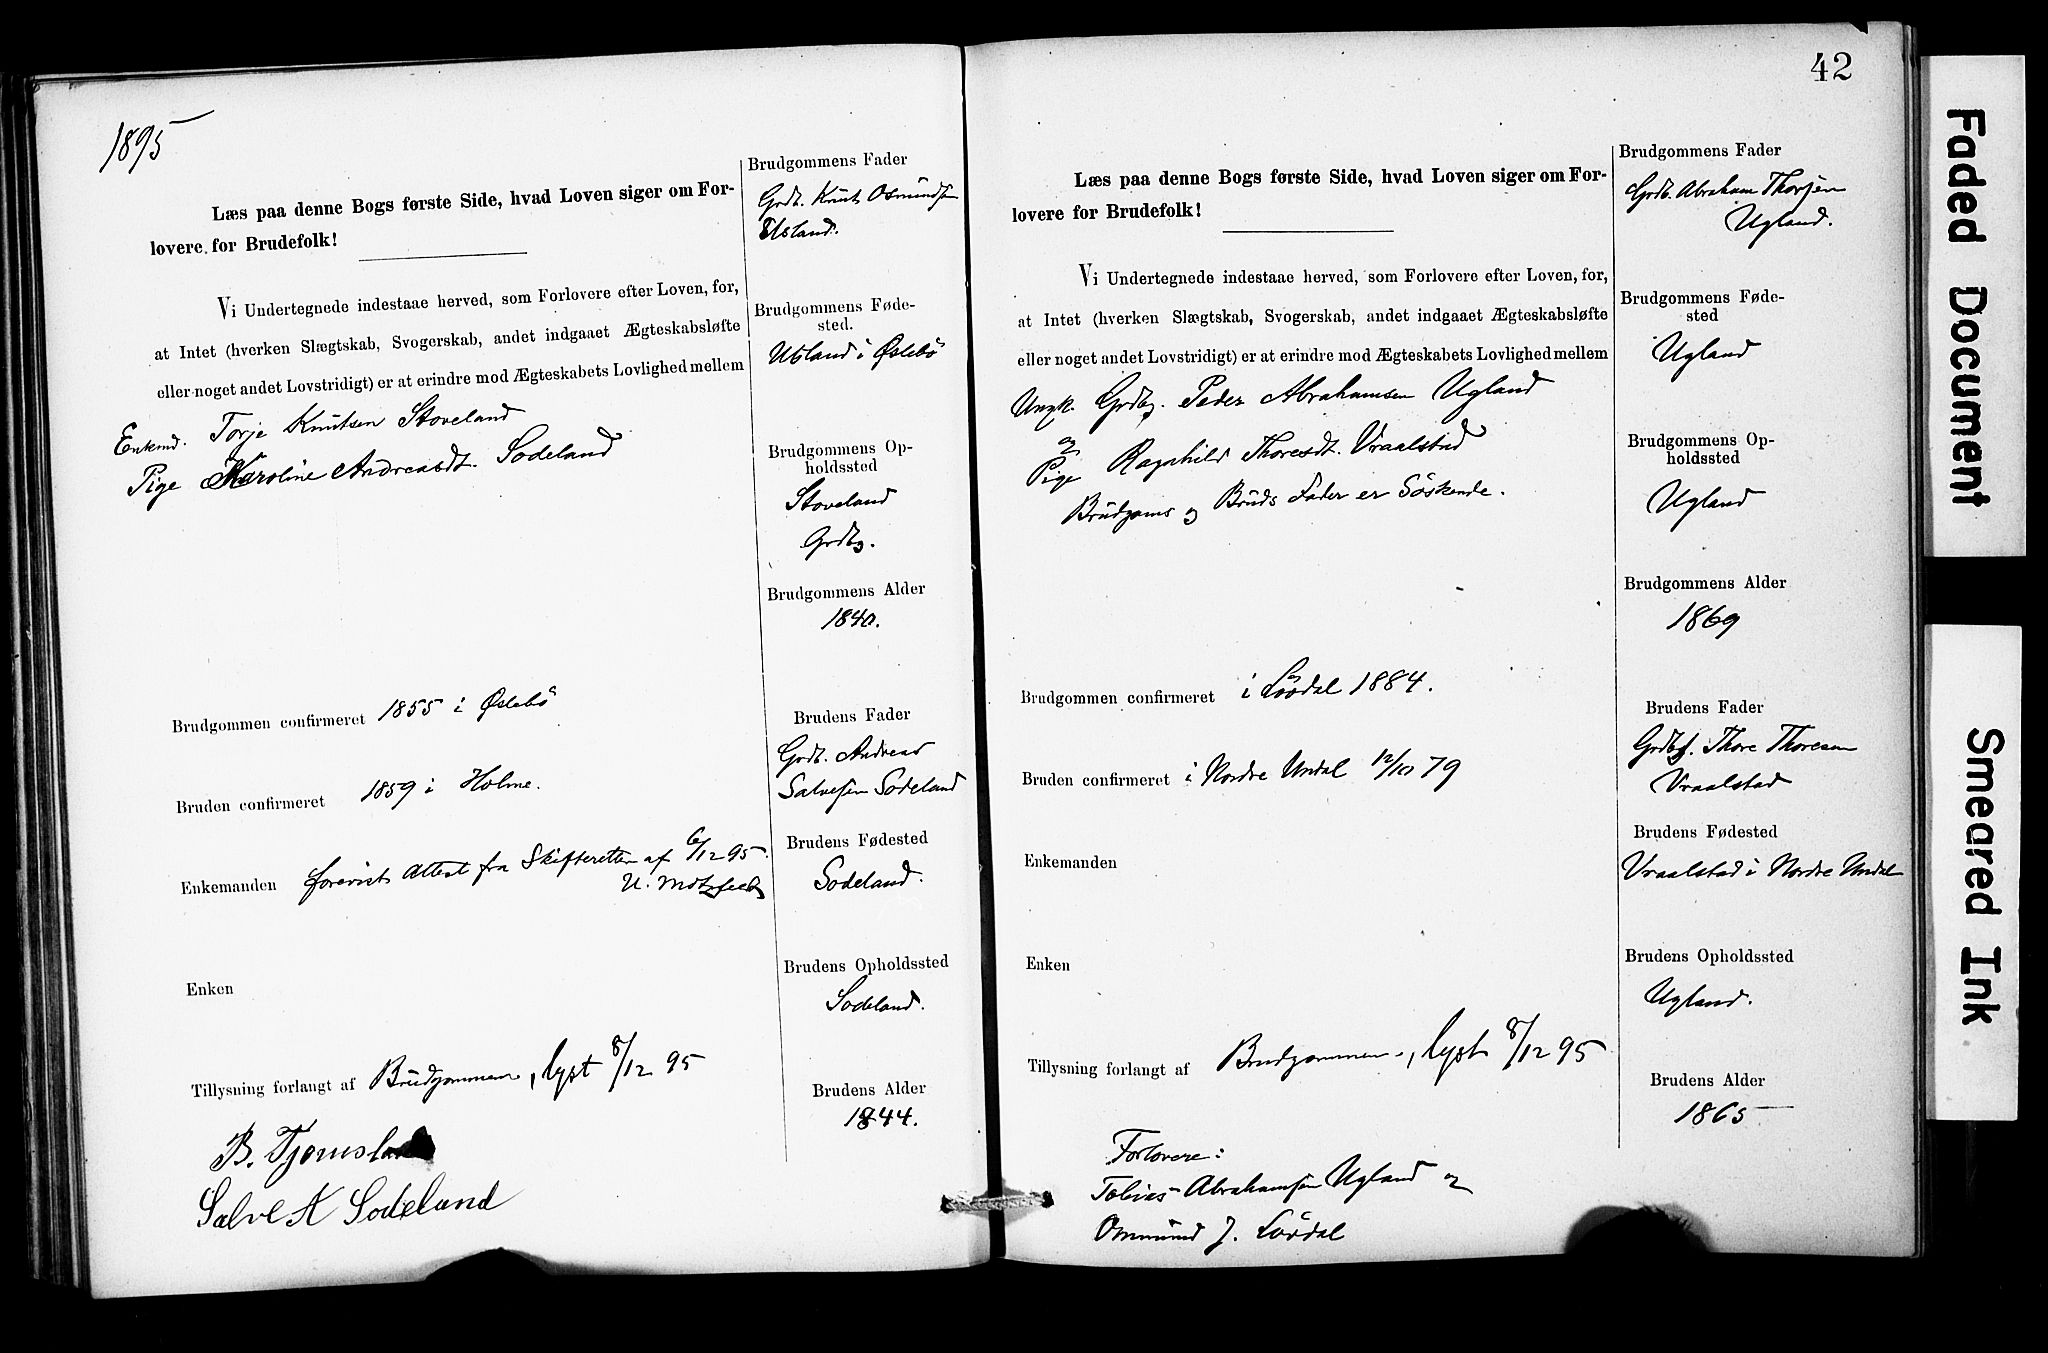 1895
Læs paa denne Bogs første Side, hvad Loven siger om For-
lovere for Brudefolk!
Vi Undertegnede indestaae herved, som Forlovere efter Loven, for,
at Intet (hverken Slægtskab, Svogerskab, andet indgaaet Ægteskabsløfte
eller noget andet Lovstridigt) er at erindre mod Ægteskabets Lovlighed mellem
Enkmd. Torje Knutsen Stoveland
Pige Karoline Andreasdt. Sodeland
Brudgommen confirmeret 1855 i Øslebö
Bruden confirmeret 1859 i Holme.
Enkemanden forevist Attest fra Skifteretten af 6/12 95.
U. Motzfeldt
Enken
Tillysning forlangt af Brudgommen, lyst 8/12 95
B. Tjomsland
Salve A Sodeland
Brudgommens Fader
Grdb. Knut Osmundsen
Usland.
BrudgommensFøde-
sted.
Usland i Øslebö
Brudgommens Op-
holdssted
Stoveland
Grdbg.
Brudgommens Alder
1840.
Brudens Fader
Grdb. Andreas
Salvesen Sodeland
Brudens Fødested
Sodeland.
Brudens Opholdssted
Sodeland.
Brudens Alder
1844.
42
Læs paa denne Bogs første Side, hvad Loven siger om For-
lovere for Brudefolk!
Vi Undertegnede indestaae herved, som Forlovere efter Loven, for,
at Intet (hverken Slægtskab, Svogerskab, andet indgaaet Ægteskabsløfte
eller noget andet Lovstridigt) er at erindre mod Ægteskabets Lovlighed mellem
Ungk. Grdbg. Peder Abrahamsen Ugland
og
Pige Ragnhild Thoresdt. Vraalstad
Brudgoms og Bruds Fader er Söskende.
Brudgommen confirmeret i Lövdal 1884.
Bruden confirmeret i Nordre Undal 12/10 79
Enkemanden
Enken
Tillysning forlangt af Brudgommen, lyst 8/12 95
Forlovere:
Tobias Abrahamsen Ugland og
Ommund J. Lövdal
Brudgommens Fader
Grdb. Abraham Thorsen
Ugland.
Brudgommens Føde-
sted
Ugland
Brudgommens Op-
holdssted
Ugland
Brudgommens Alder
1869
Brudens Fader
Grdbg. Thore Thoresen
Vraalstad
Brudens Fødested
Vraalstad i Nordre Undal
Brudens Opholdssted
Ugland.
Brudens Alder
1865
Faded Document
Smeared Ink